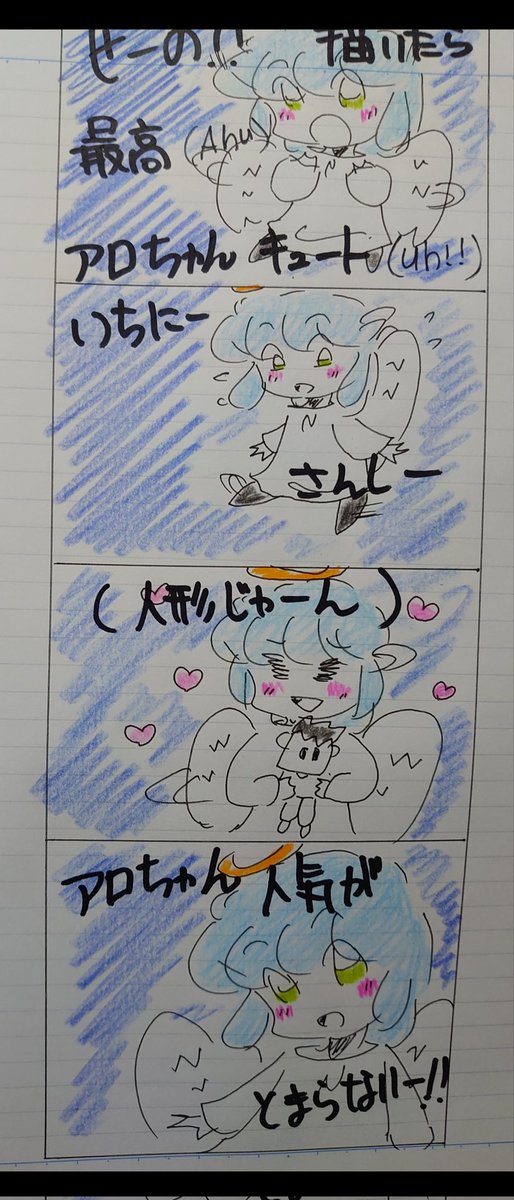 せーの!! 描けたら
最高 (Ahu)
アロちゃん キュート (uh!!)
いちにー
さんしー
(人形じゃーん)
アロちゃん 人気が
とまらないー!!